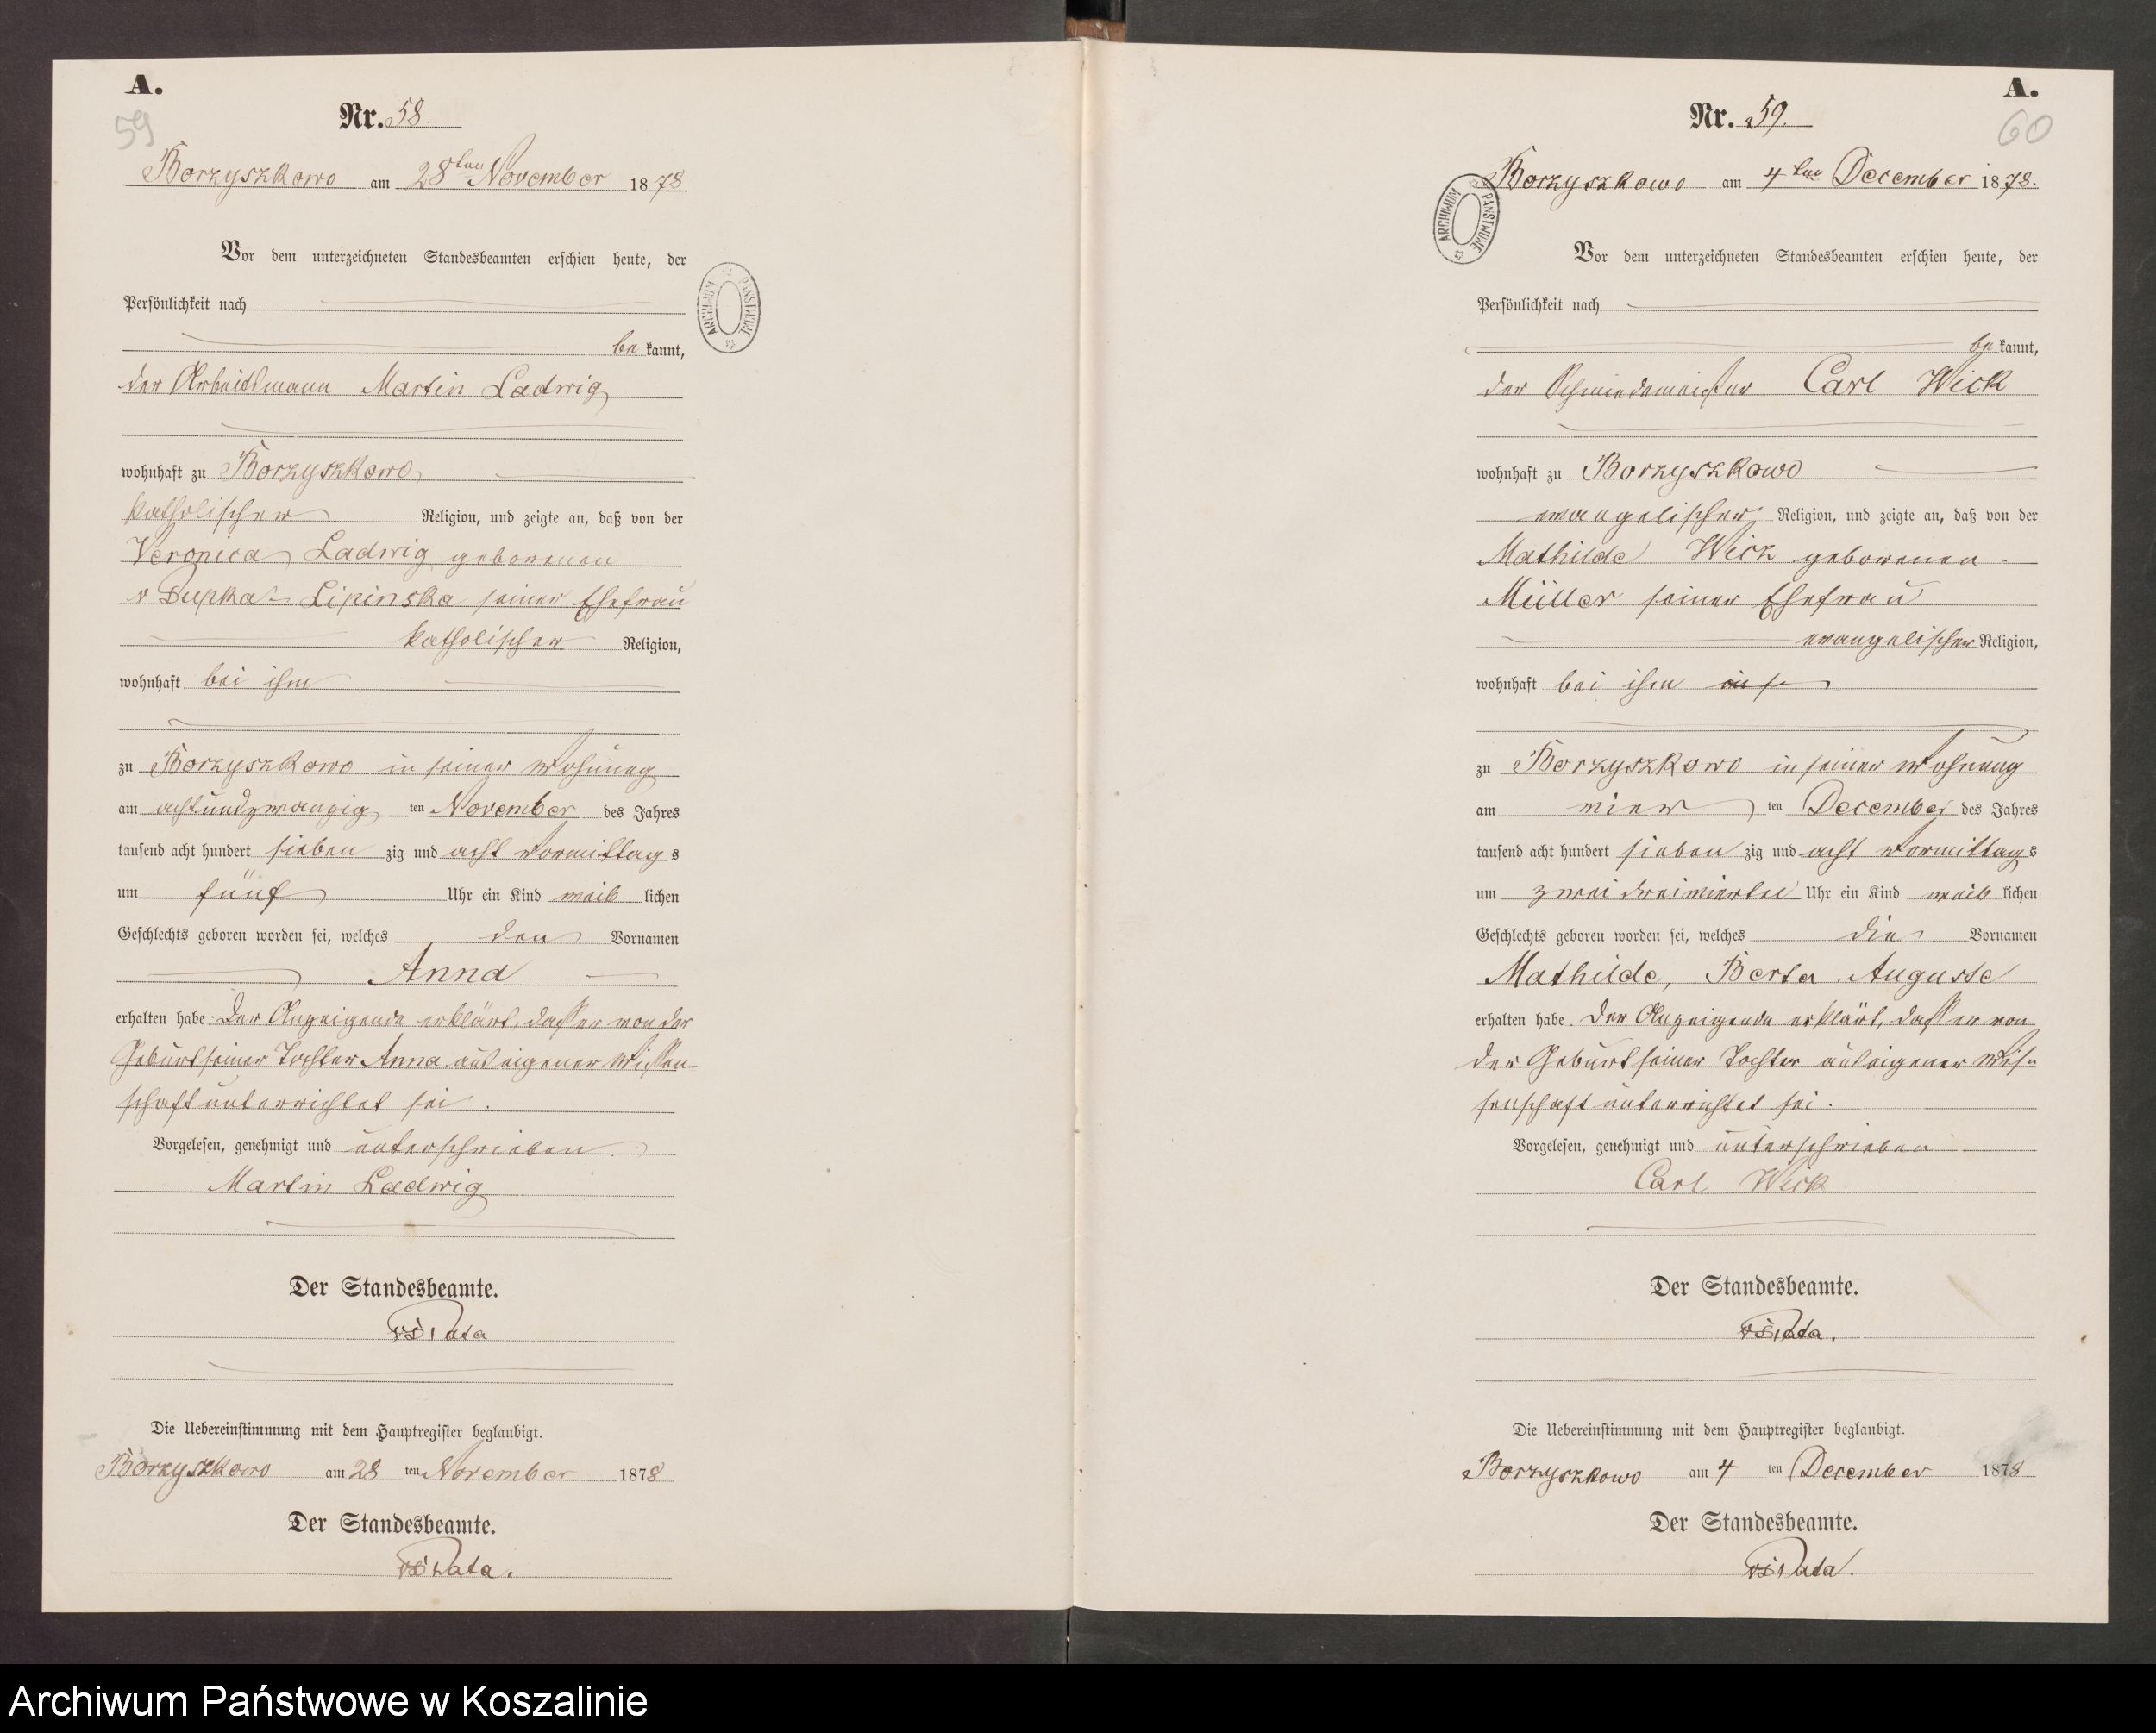 A.
59
Nr. 58.
Borzyszkowo am 28ten November 1878
Vor dem unterzeichneten Standesbeamten erschien heute, der
Persönlichkeit nach
be kannt,
der Arbeitsmann Martin Ladwig
wohnhaft zu Borzyszkowo
katholischer Religion, und zeigte an, daß von der
Veronica Ladwig geborenen
v Dupka - Lipinska seiner Ehefrau
katholischer Religion,
wohnhaft bei ihm
zu Borzyszkowo in seiner Wohnung
am achtundzwanzig ten November des Jahres
tausend acht hundert sieben zig und acht Vormittag s
um fünf Uhr ein Kind weib lichen
Geschlechts geboren worden sei, welches den Vornamen
Anna
erhalten habe. Der Anzeigende erklärt, dass er von der
Geburt seiner Tochter Anna aus eigener Wissen-
schaft unterrichtet sei.
Vorgelesen, genehmigt und unterschrieben
Martin Ladwig
Der Standesbeamte.
Die Uebereinstimmung mit dem Hauptregister beglaubigt.
Borzyszkowo am 28 ten November 1878
Der Standesbeamte.
ARCHIWUM PAŃSTWOWE
A.
60
Nr. 59.
Borzyszkowo am 4ten December 1878.
ARCHIWUM PAŃSTWOWE
Vor dem unterzeichneten Standesbeamten erschien heute, der
Persönlichkeit nach
be kannt,
der Schmiedemeister Carl Wick
wohnhaft zu Borzyszkowo
evangelischer Religion, und zeigte an, daß von der
Mathilde Wick geborenen
Müller seiner Ehefrau
evangelischer Religion,
wohnhaft bei ihm
zu Borzyszkowo in seiner Wohnung
am vier ten December des Jahres
tausend acht hundert sieben zig und acht Vormittag s
um zwei dreiviertel Uhr ein Kind weib lichen
Geschlechts geboren worden sei, welches die Vornamen
Mathilde, Berta Auguste
erhalten habe. Der Anzeigende erklärt, dass er von
der Geburt seiner Tochter aus eigener Wis-
senschaft unterrichtet sei.
Vorgelesen, genehmigt und unterschrieben
Carl Wick
Der Standesbeamte.
Die Uebereinstimmung mit dem Hauptregister beglaubigt.
Borzyszkowo am 4 ten December 1878
Der Standesbeamte.
Archiwum Państwowe w Koszalinie